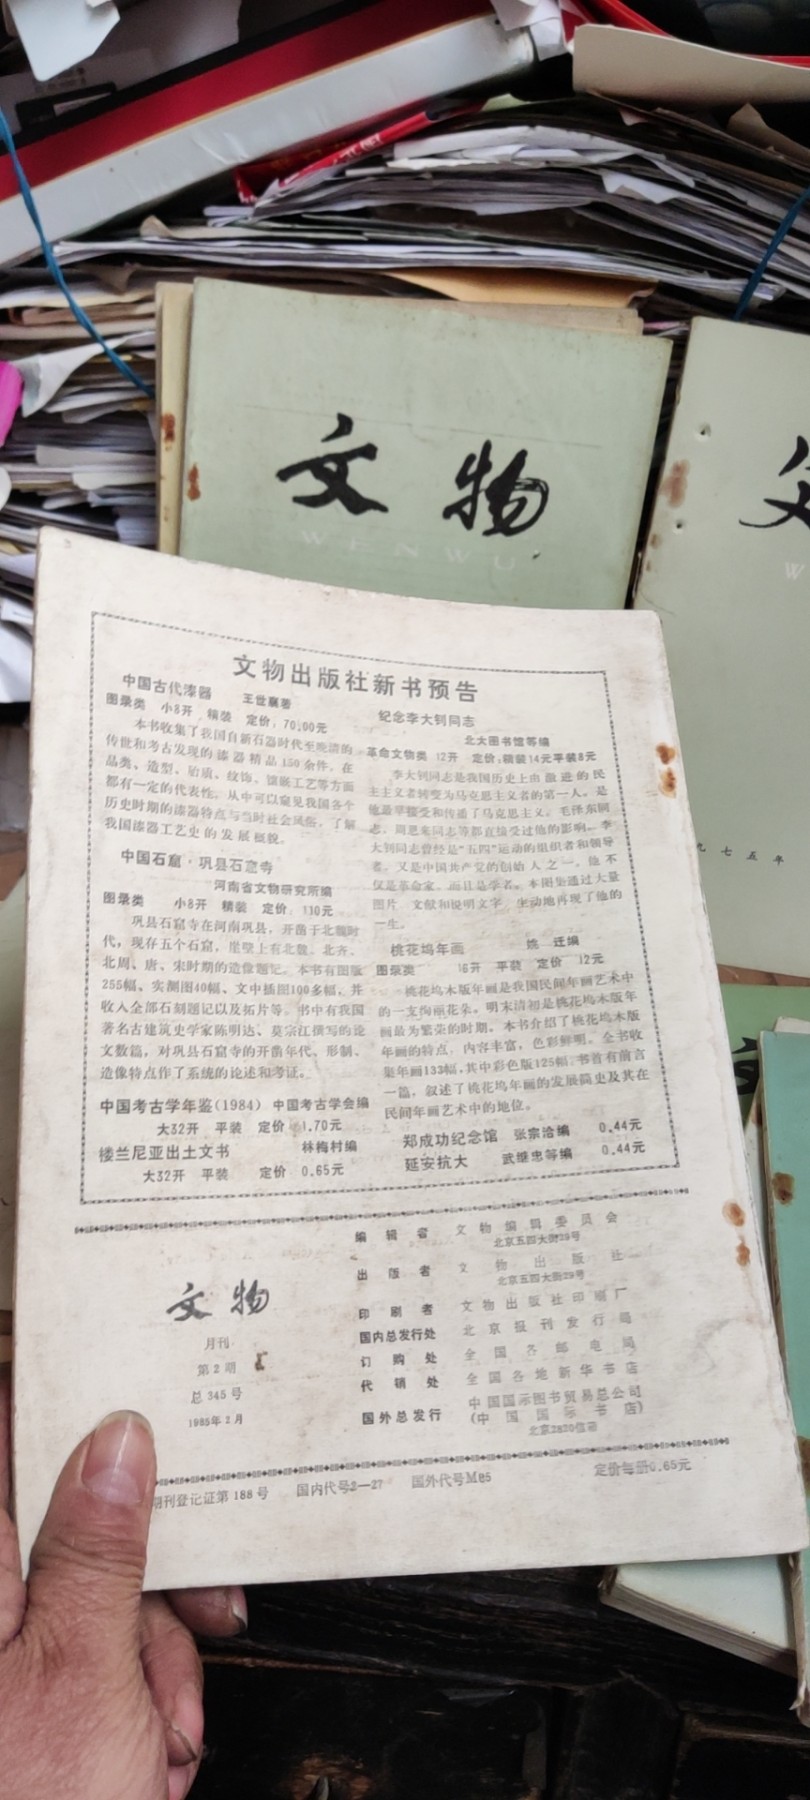 文物
WENWU
文物出版社新书预告
中国古代漆器 王世襄著
图录类 小8开 精装 定价：70.00元
本书收集了我国自新石器时代至晚清的
传世和考古发现的漆器精品150余件。在
品类、造型、胎质、纹饰、镶嵌工艺等方面
都有一定的代表性。从中可以窥见我国各个
历史时期的漆器特点与当时社会风俗，了解
我国漆器工艺史的发展概貌。
中国石窟·巩县石窟寺
河南省文物研究所编
图录类 小8开 精装 定价 110元
巩县石窟寺在河南巩县，开凿于北魏时
代，现存五个石窟，崖壁上有北魏、北齐、
北周、唐、宋时期的造像题记。本书有图版
255幅、实测图40幅、文中插图100多幅，并
收入全部石刻题记以及拓片等。书中有我国
著名古建筑史学家陈明达、莫宗江撰写的论
文数篇，对巩县石窟寺的开凿年代、形制、
造像特点作了系统的论述和考证。
中国考古学年鉴(1984) 中国考古学会编
大32开 平装 定价 1.70元
楼兰尼亚出土文书 林梅村编
大32开 平装 定价 0.65元
纪念李大钊同志
北大图书馆等编
革命文物类 12开 定价：精装14元平装8元
李大钊同志是我国历史上由激进的民
主主义者转变为马克思主义者的第一人。是
他最早接受和传播了马克思主义。毛泽东同
志、周恩来同志等都直接受过他的影响。李
大钊同志曾经是“五四”运动的组织者和领导
者，又是中国共产党的创始人之一。他不
仅是革命家，而且是学者。本图集通过大量
图片、文献和说明文字，生动地再现了他的
一生。
桃花坞年画 姚迁编
图录类 16开 平装 定价 12元
桃花坞木版年画是我国民间年画艺术中
的一支绚丽花朵。明末清初是桃花坞木版年
画最为繁荣的时期。本书介绍了桃花坞木版
年画的特点，内容丰富，色彩鲜明。全书收
集年画133幅，其中彩色版125幅，书首有前言
一篇，叙述了桃花坞年画的发展简史及其在
民间年画艺术中的地位。
郑成功纪念馆 张宗洽编 0.44元
延安抗大 武继忠等编 0.44元
文物
月刊
第2期
总345号
1985年2月
编辑者 文物编辑委员会
北京五四大街29号
出版者 文物出版社
北京五四大街29号
印刷者 文物出版社印刷厂
国内总发行处 北京报刊发行局
订购处 全国各邮电局
代销处 全国各地新华书店
国外总发行 中国国际图书贸易总公司
(中国国际书店)
北京2820信箱
期刊登记证第188号 国内代号2—27 国外代号M85 定价每册0.65元
九七五年